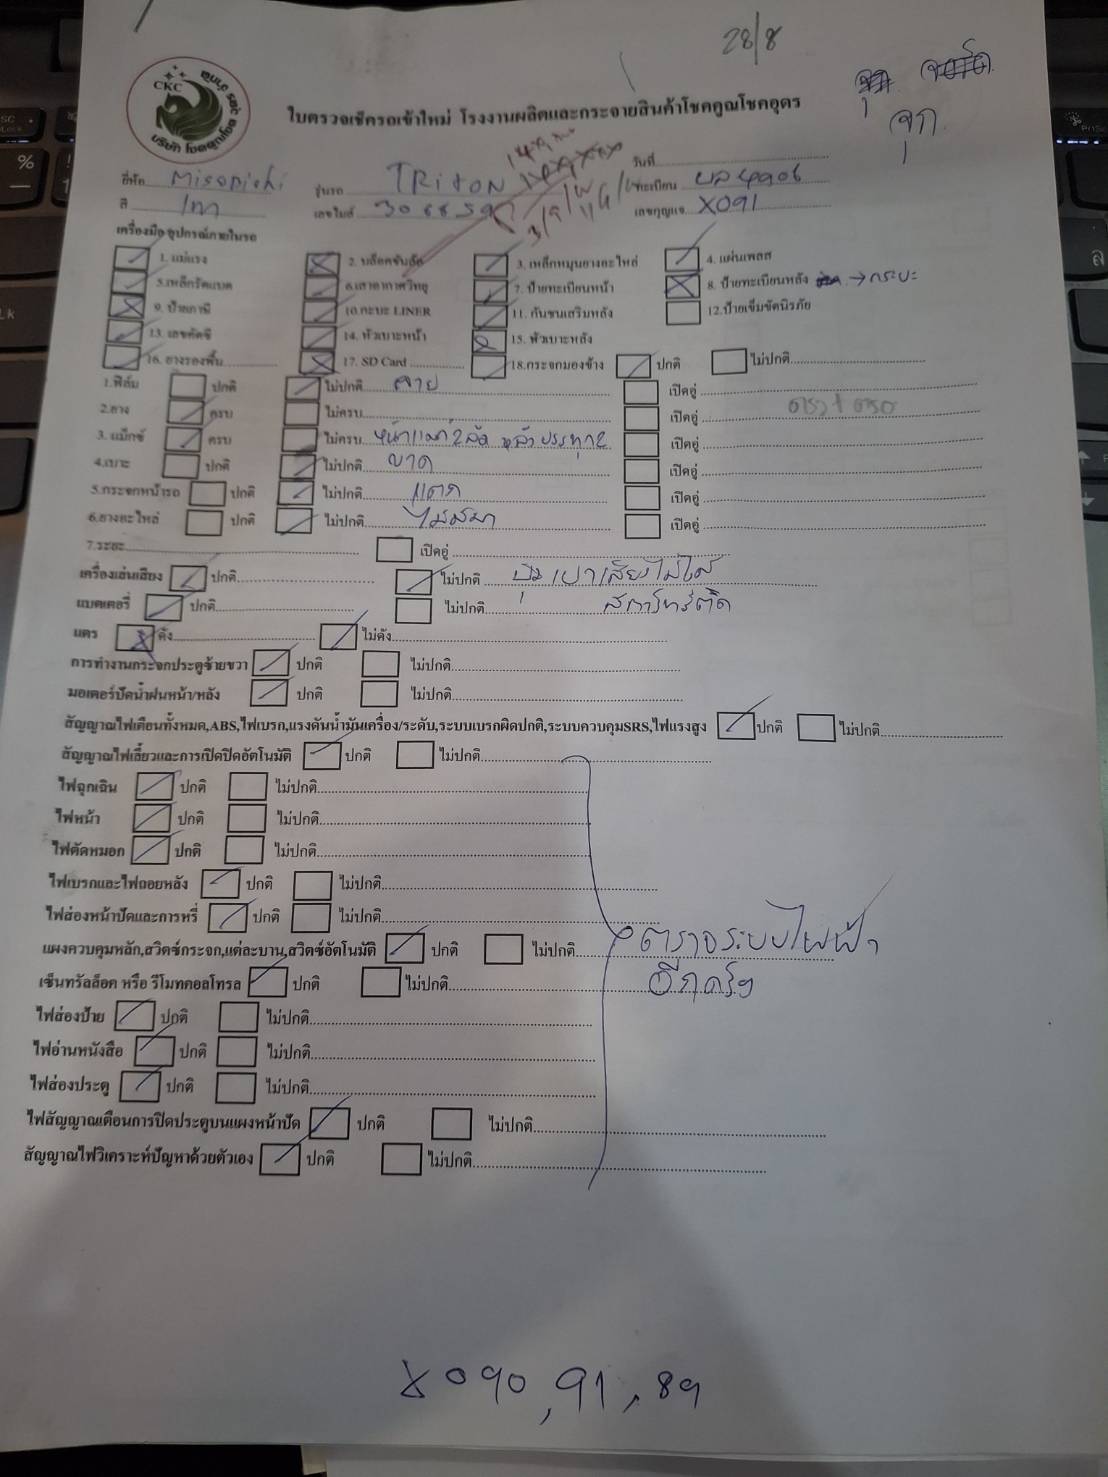 28/8
CKC
ใบตรวจเช็ครถเข้าใหม่ โรงงานผลิตและกระจายสินค้าโชคคูณโชคอุดร
จุก
วันที่
ยี่ห้อ Misopishi รุ่นรถ TRiton ทะเบียน
สี เทา เลขไมล์ เลขกุญแจ X091
เครื่องมืออุปกรณ์ภายในรถ
1. แม่แรง 2. บล็อคขันล้อ 3. เหล็กหมุนยางอะไหล่ 4. แผ่นเพลส
5.เหล็กรัดแบต 6.เสาอากาศวิทยุ 7. ป้ายทะเบียนหน้า 8. ป้ายทะเบียนหลัง → กระบะ
9. ป้ายภาษี 10.กะบะ LINER 11. กันชนเสริมหลัง 12.ป้ายเข็มขัดนิรภัย
13. เลขคัดซี 14. หัวเบาะหน้า 15. หัวเบาะหลัง
16. ยางรองพื้น 17. SD Card 18.กระจกมองข้าง ปกติ ไม่ปกติ
1.ฟิล์ม ปกติ ไม่ปกติ ลาย เปิดอู่
2.ยาง ครบ ไม่ครบ เปิดอู่
3. แม็กซ์ ครบ ไม่ครบ หน้าแมก 2 ล้อ หลังบรรทุก 2 เปิดอู่
4.เบาะ ปกติ ไม่ปกติ ขาด เปิดอู่
5.กระจกหน้ารถ ปกติ ไม่ปกติ แตก เปิดอู่
6.ยางอะไหล่ ปกติ ไม่ปกติ ไม่มีมา เปิดอู่
7.ระยะ เปิดอู่
เครื่องเล่นเสียง ปกติ ไม่ปกติ ปุ่มเบาเสียงไม่ได้
แบตเตอรี่ ปกติ ไม่ปกติ สตาร์ทติด
แตร ดัง ไม่ดัง
การทำงานกระจกประตูซ้ายขวา ปกติ ไม่ปกติ
มอเตอร์ปัดน้ำฝนหน้า/หลัง ปกติ ไม่ปกติ
สัญญาณไฟเตือนทั้งหมด,ABS,ไฟเบรก,แรงดันน้ำมันเครื่อง/ระดับ,ระบบเบรกผิดปกติ,ระบบควบคุมSRS,ไฟแรงสูง ปกติ ไม่ปกติ
สัญญาณไฟเลี้ยวและการเปิดปิดอัตโนมัติ ปกติ ไม่ปกติ
ไฟฉุกเฉิน ปกติ ไม่ปกติ
ไฟหน้า ปกติ ไม่ปกติ
ไฟตัดหมอก ปกติ ไม่ปกติ
ไฟเบรกและไฟถอยหลัง ปกติ ไม่ปกติ
ไฟส่องหน้าปัดและการหรี่ ปกติ ไม่ปกติ
แผงควบคุมหลัก,สวิตช์กระจก,แต่ละบาน,สวิตช์อัตโนมัติ ปกติ ไม่ปกติ ตรวจระบบไฟฟ้า
เซ็นทรัลล็อค หรือ รีโมทคอลโทรล ปกติ ไม่ปกติ อีกครั้ง
ไฟส่องป้าย ปกติ ไม่ปกติ
ไฟอ่านหนังสือ ปกติ ไม่ปกติ
ไฟส่องประตู ปกติ ไม่ปกติ
ไฟสัญญาณเตือนการปิดประตูบนแผงหน้าปัด ปกติ ไม่ปกติ
สัญญาณไฟวิเคราะห์ปัญหาด้วยตัวเอง ปกติ ไม่ปกติ
X090, 91, 89